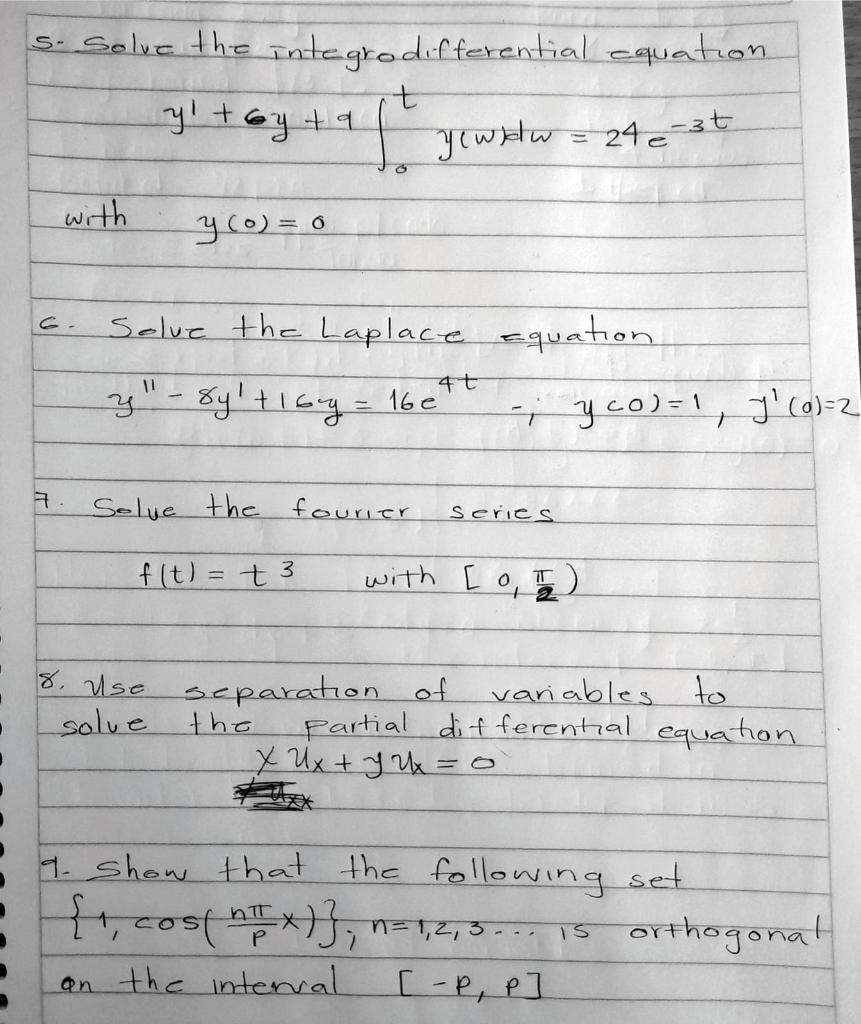 5. Solve the integrodifferential equation
y' + 6y + 9 ∫₀ᵗ y(w)dw = 24e^-3t
with y(0) = 0
6. Solve the Laplace Equation
y'' - 8y' + 16y = 16e^4t -; y(0)=1, y'(0)=2
7. Solve the fourier series
f(t) = t^3 with [0, π/2)
8. Use separation of variables to
solve the partial differential equation
x Ux + y Ux = 0
9. Show that the following set
{1, cos(nπ/p x)}, n=1,2,3... is orthogonal
on the interval [-P, P]